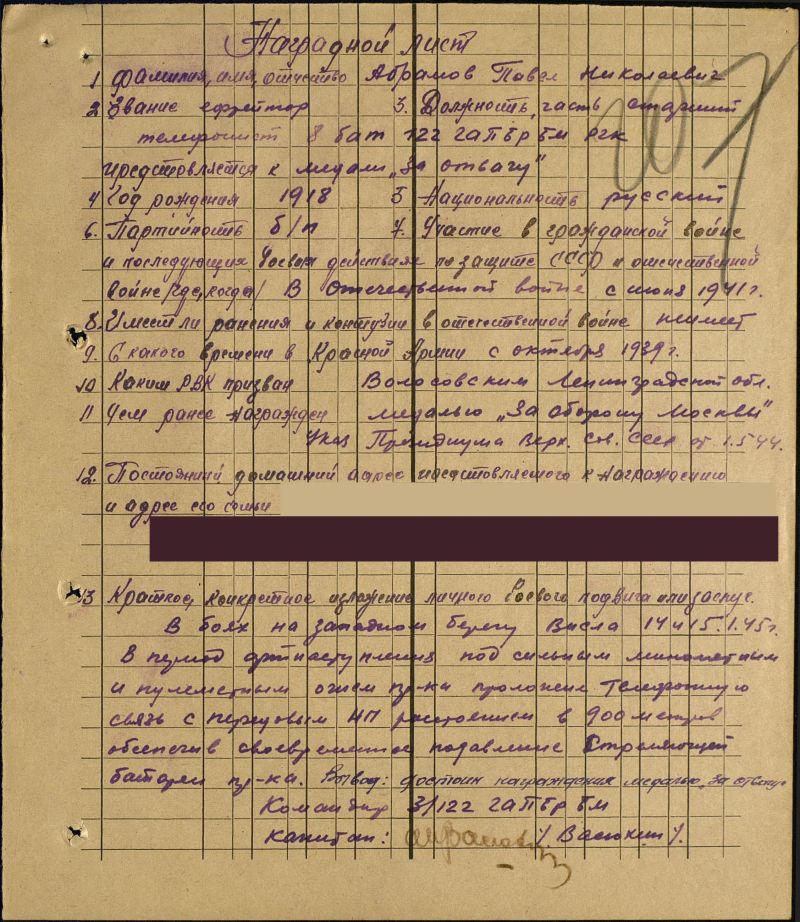 Наградной лист
207
1 Фамилия, имя, отчество Абрамов Павел Николаевич
2 Звание ефрейтор 3. Должность, часть старший
телефонист 8 бат 122 гапбр бм ргк
представляется к медали „За отвагу"
4 Год рождения 1918 5 Национальность русский
6. Партийность б/п 7. Участие в гражданской войне
и последующих боевых действиях по защите СССР и отечественной
войне /где, когда/ В Отечественной войне с июня 1941 г.
8. Имеет ли ранения и контузии в отечественной войне не имеет
9. С какого времени в Красной Армии с октября 1939 г.
10 Каким РВК призван Волосовским Ленинградской обл.
11 Чем ранее награжден медалью „За оборону Москвы"
Указ Президиума Верх. Сов. СССР от 1.5.44.
12. Постоянный домашний адрес представляемого к награждению
и адрес его семьи
13 Краткое, конкретное изложение личного боевого подвига или заслуг.
В боях на западном берегу Висла 14 и 15.1.45 г.
в период артнаступления под сильным минометным
и пулеметным огнем пр-ка проложил телефонную
связь с передовым НП расстоянием в 900 метров
обеспечив своевременное подавление стреляющей
батареи пр-ка. Вывод: достоин награждения медалью „За отвагу
Командир 3/122 гапбр бм
капитан: /Васюкин/.